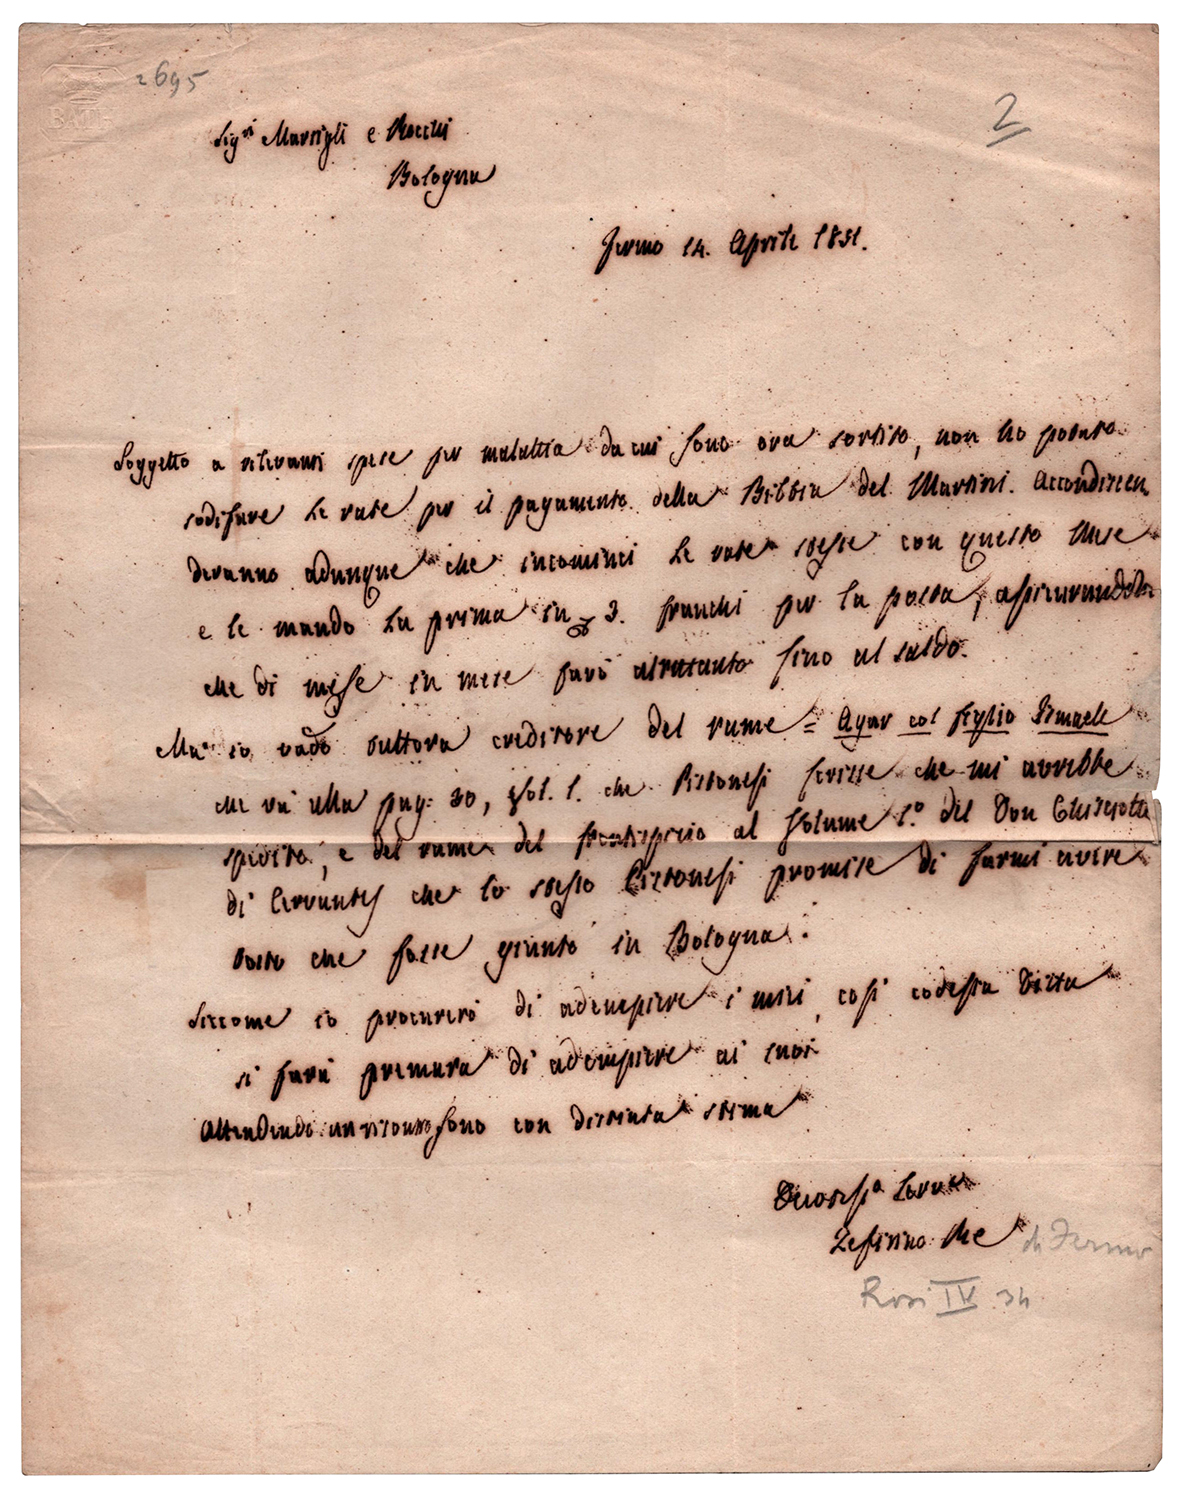 2695
BATH
2
Sig.ri Marsigli e Rocchi
Bologna
Fermo 14. Aprile 1851.
Soggetto a rilevanti spese per malattia da cui sono ora sortito, non ho potuto
sodisfare le rate per il pagamento della Bibbia del Martini. Accondiscen
deranno adunque che incominci le rate stesse con questo Mese
e le mando la prima in 3. franchi per la posta, assicurandola
che di mese in mese farò altratanto fino al saldo.
Ma io vado tuttora creditore del rame = Agar col figlio Ismaele
che va alla pag. 30, Vol. 1. che Pistonesi scrisse che mi avrebbe
spedito, e del rame del frontispizio al Volume 1.º del Don Chisciotte
di Cervantes che lo stesso Pistonesi promise di farmi avere
tosto che fosse giunto in Bologna.
Siccome io procurerò di adempiere i miei, così codesta Ditta
si farà premura di adempiere ai suoi
Attendendo un riscontro sono con distinta stima
Zefirino Re di Fermo
Rosi IV 34